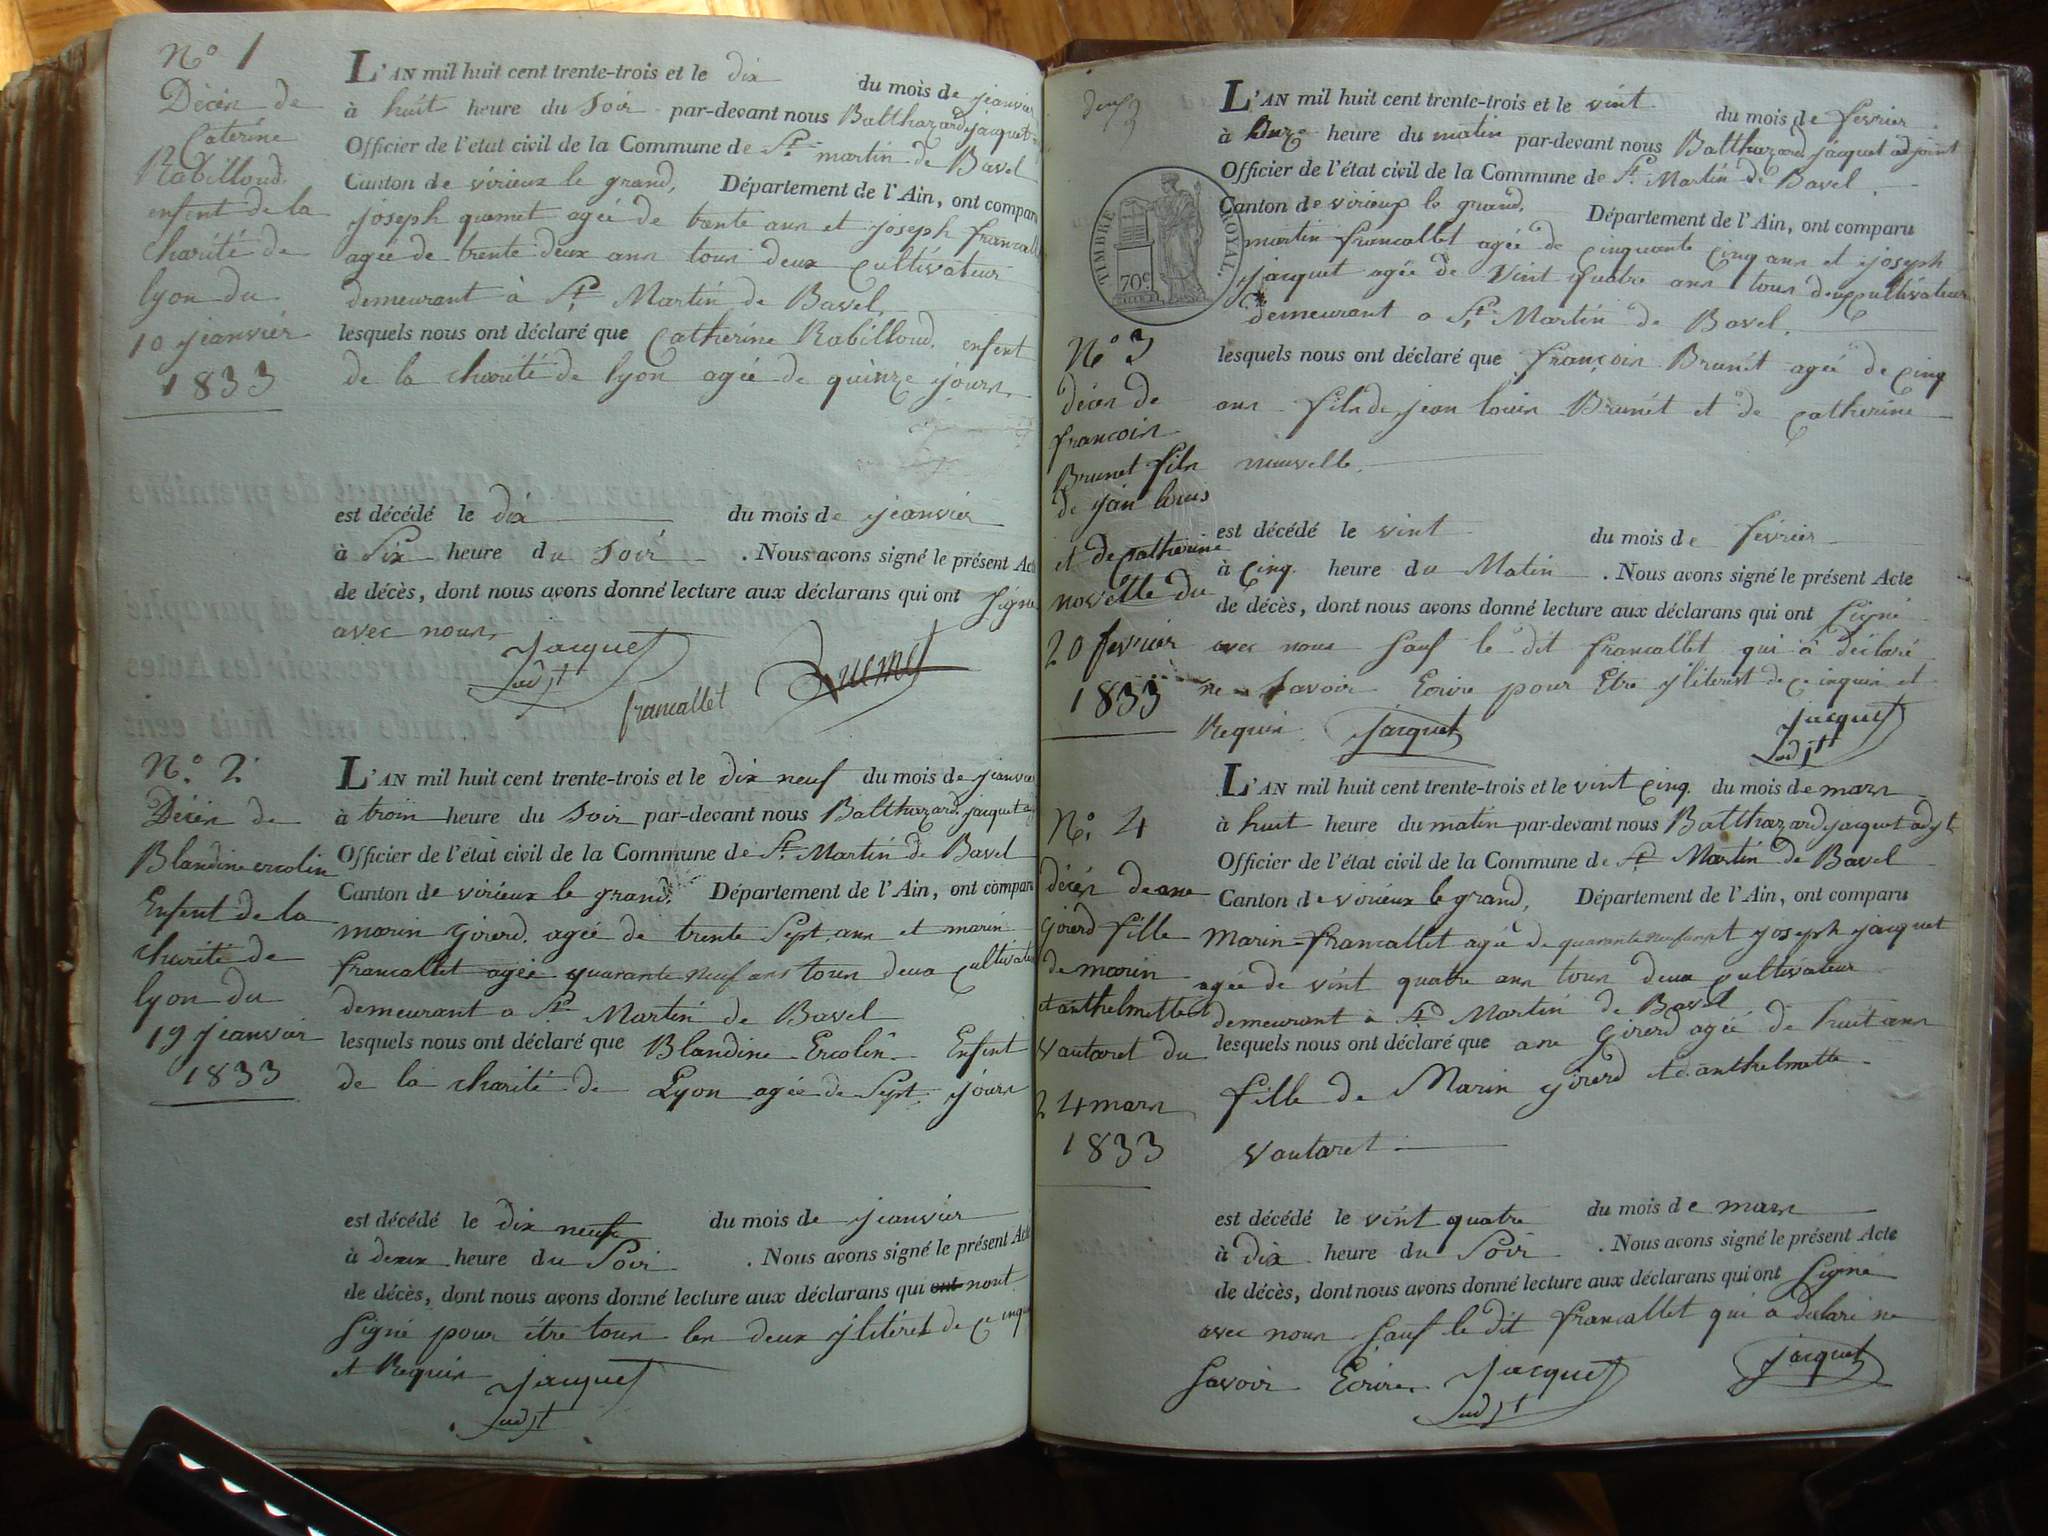 N.o 1
Décèr de
Caterine
Rabilloud.
enfent de la
charité de
lyon du
10 jeanvier
1833
L'AN mil huit cent trente-trois et le dix du mois de jeanvier
à huit heure du Soir par-devant nous Balthazard jacquet
Officier de l'etat civil de la Commune de St. martin de Bavel
Canton de virieux le grand, Département de l'Ain, ont comparu
joseph quemet agée de trente ans et joseph francallet
agée de trente deux ans tous deux cultivateur
demeurant à St. Martin de Bavel,
lesquels nous ont déclaré que Catherine Rabilloud. enfent
de la charité de lyon agée de quinze jours,
est décédé le dix du mois de jeanvier
à Six heure du Soir . Nous avons signé le présent Acte
de décès, dont nous avons donné lecture aux déclarans qui ont Signé
avec nous,
Jacquet
adjt
francallet
Quemet
N.o 2
Décèr de
Blandine ercolin
Enfent de la
charité de
lyon du
19 jeanvier
1833
L'AN mil huit cent trente-trois et le dix neuf du mois de jeanvier
à troir heure du Soir par-devant nous Balthazard jacquet adj
Officier de l'état civil de la Commune de St. Martin de Bavel
Canton de virieux le grand, Département de l'Ain, ont comparu
marin Girerd. agée de trente Sept ans et marin
francallet agée quarante neuf ans tous deux cultivateur
demeurant a St. Martin de Bavel
lesquels nous ont déclaré que Blandine Ercolin Enfent
de la charité de Lyon agée de Sept jours
est décédé le dix neuf du mois de jeanvier
à deux heure du Soir . Nous avons signé le présent Acte
de décès, dont nous avons donné lecture aux déclarans qui ont nont
Signé pour être tous les deux jliteret de ce inqui
et Requis
Jacquet
adjt
TIMBRE ROYAL.
70c
N.o 3
décès de
francois
Brunet fils
de jan louis
et de catherine
novelle du
20 fevrier
1833
L'AN mil huit cent trente-trois et le vint du mois de fevrier
à Onze heure du matin par-devant nous Balthazard jacquet adjoint
Officier de l'état civil de la Commune de St. Martin de Bavel
Canton de virieux le grand, Département de l'Ain, ont comparu
martin francallet agée de cinquante cinq ans et joseph
jacquet agée de Vint quatre ans tous deux cultivateur
demeurant a St. Martin de Bavel.
lesquels nous ont déclaré que françois Brunet agée de cinq
ans fils de jean louis Brunet et de catherine
nouvelle.
est décédé le vint du mois de février
à cinq heure du Matin . Nous avons signé le présent Acte
de décès, dont nous avons donné lecture aux déclarans qui ont Signé
avec nous Sauf le dit francallet qui a déclaré
ne Savoir Ecrire pour Etre jliterest de ce inquis et
Requis
Jacquet
Jacquet
adjt
N.o 4
décès de ane
Girerd fille
de marin
et anthelmette
Vautaret du
24 mars
1833
L'AN mil huit cent trente-trois et le vint cinq du mois de mars
à huit heure du matin par-devant nous Balthazard jacquet adjt
Officier de l'état civil de la Commune de St Martin de Bavel
Canton de virieux le grand, Département de l'Ain, ont comparu
Marin francallet agée de quarante neuf ans et joseph jacquet
agée de vint quatre ans tous deux cultivateur
demeurant à St Martin de Bavel
lesquels nous ont déclaré que ane Girerd agée de huit ans
fille de Marin Girerd et d'anthelmette
Vautaret
est décédé le vint quatre du mois de mars
à dix heure du Soir . Nous avons signé le présent Acte
de décès, dont nous avons donné lecture aux déclarans qui ont Signé
avec nous Sauf le dit francallet qui a declaré ne
Savoir Ecrire
Jacquet
adjt
Jacquet